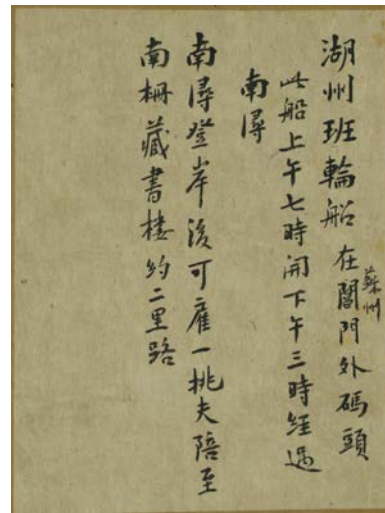 湖州班輪船在蘇州閶門外碼頭
此船上午七時開下午三時經過
南潯
南潯登岸後可雇一挑夫陪至
南柵藏書樓約二里路